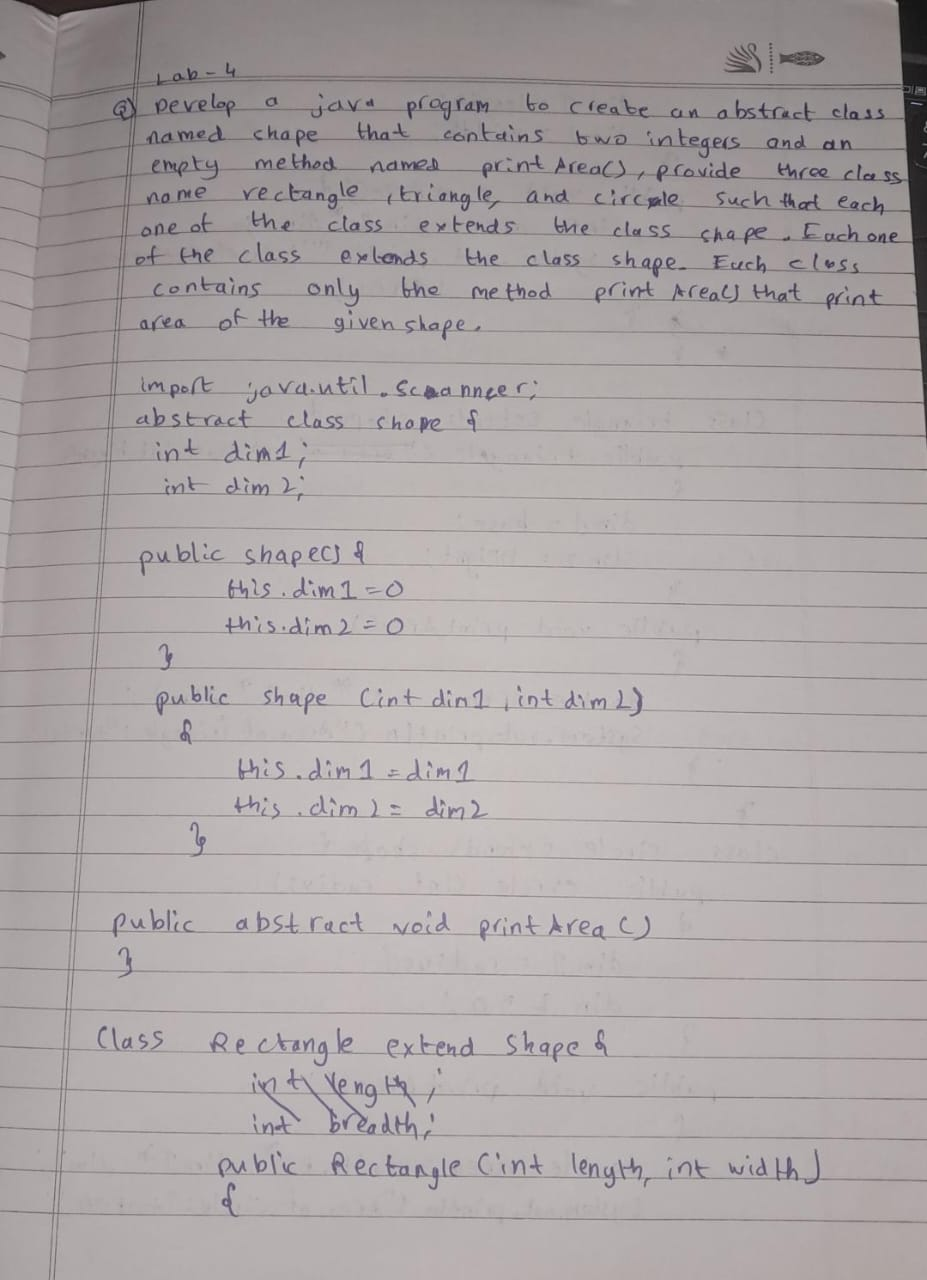 Lab-4
Q) Develop a java program to create an abstract class
named shape that contains two integers and an
empty method named printArea(), provide three class
name rectangle, triangle, and circle such that each
one of the class extends the class shape. Each one
of the class extends the class shape. Each class
contains only the method print Area() that print
area of the given shape.
import java.util.Scaanneer;
abstract class shape {
int dim1;
int dim 2;
public shape() {
this.dim1=0
this.dim2=0
}
public shape (int dim1, int dim2)
{
this.dim1=dim1
this.dim2= dim2
}
public abstract void printArea()
}
Class Rectangle extend Shape {
int length;
int breadth;
public Rectangle (int length, int width)
{